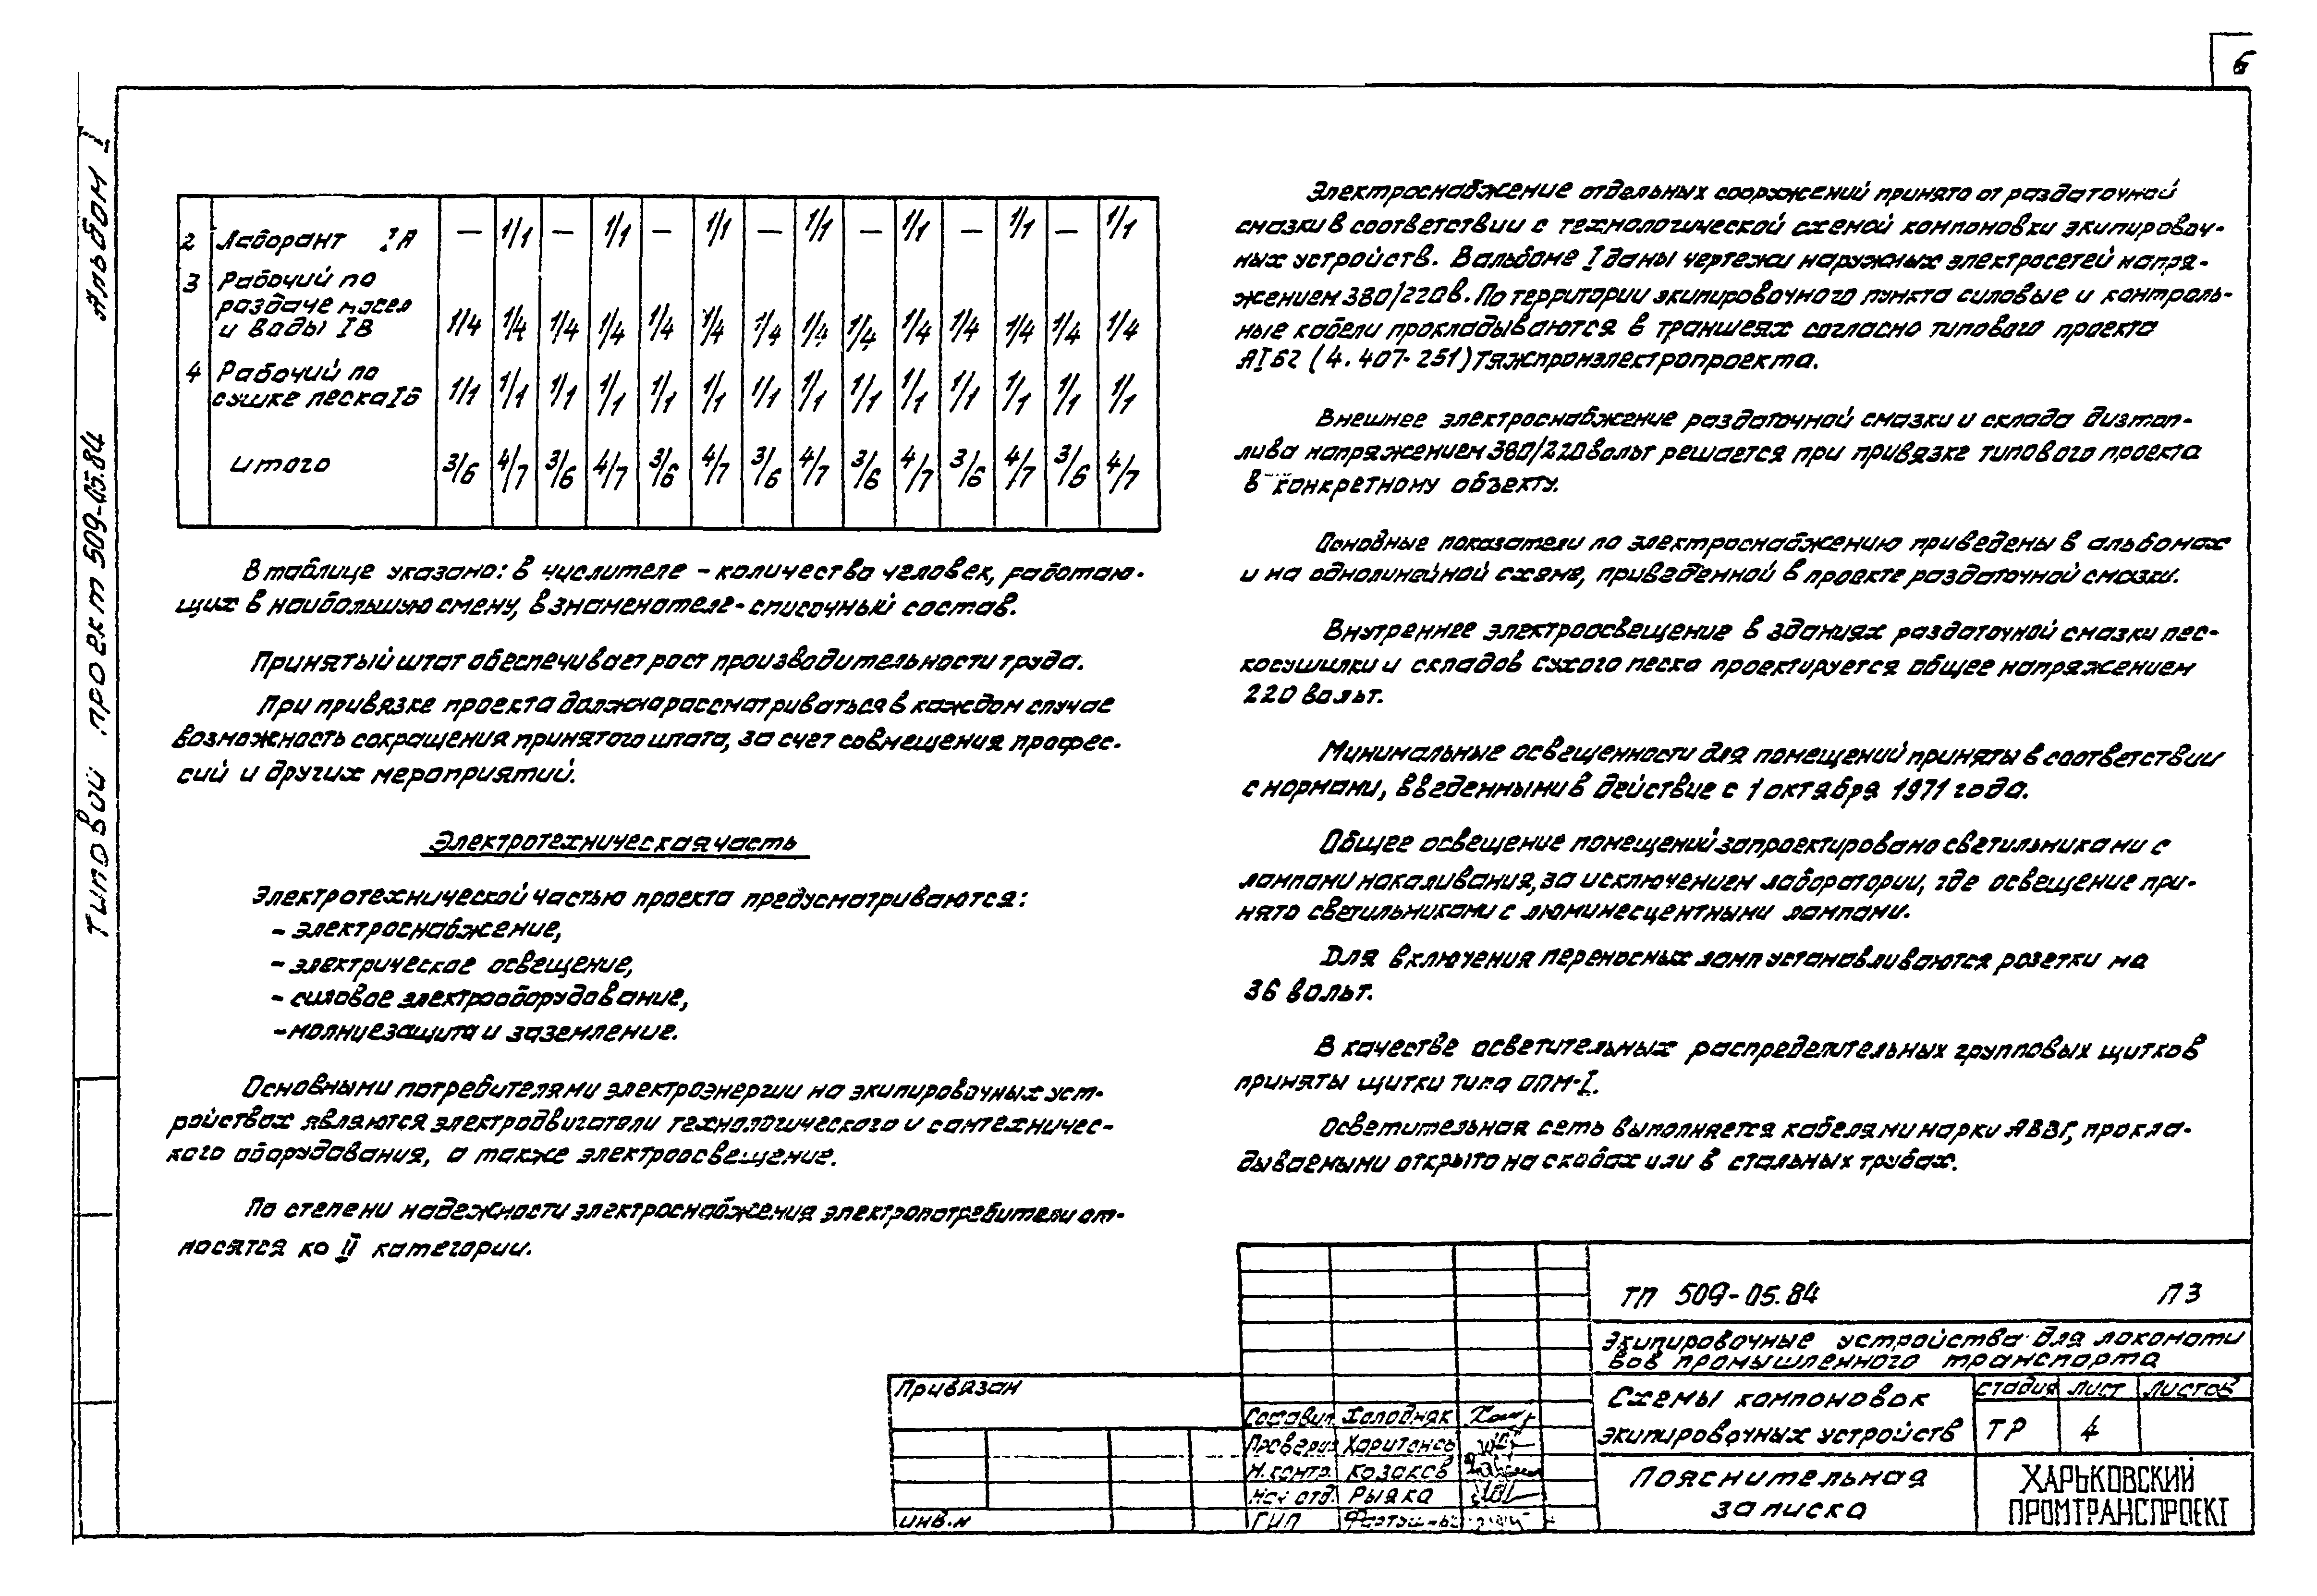 6
Альбом I
Типовой проект 509-05.84
2 Лаборант IА — 1/1 — 1/1 — 1/1 — 1/1 — 1/1 — 1/1 — 1/1
3 Рабочий по
раздаче масел
и воды IВ 1/4 1/4 1/4 1/4 1/4 1/4 1/4 1/4 1/4 1/4 1/4 1/4 1/4 1/4
4 Рабочий по
сушке песка Iб 1/1 1/1 1/1 1/1 1/1 1/1 1/1 1/1 1/1 1/1 1/1 1/1 1/1 1/1
итого 3/6 4/7 3/6 4/7 3/6 4/7 3/6 4/7 3/6 4/7 3/6 4/7 3/6 4/7
В таблице указано: в числителе - количество человек, работаю-
щих в наибольшую смену, в знаменателе - списочный состав.
Принятый штат обеспечивает рост производительности труда.
При привязке проекта должна рассматриваться в каждом случае
возможность сокращения принятого штата, за счет совмещения профес-
сий и других мероприятий.
Электротехническая часть
Электротехнической частью проекта предусматриваются:
- электроснабжение,
- электрическое освещение,
- силовое электрооборудование,
- молниезащита и заземление.
Основными потребителями электроэнергии на экипировочных уст-
ройствах являются электродвигатели технологического и сантехничес-
кого оборудования, а также электроосвещение.
По степени надежности электроснабжения электропотребители от-
носятся ко II категории.
Электроснабжение отдельных сооружений принято от раздаточной
смазки в соответствии с технологической схемой компоновки экипировоч-
ных устройств. В альбоме I даны чертежи наружных электросетей напря-
жением 380/220в. По территории экипировочного пункта силовые и контроль-
ные кабели прокладываются в траншеях согласно типового проекта
(4.407-251) Тяжпромэлектропроекта.
Внешнее электроснабжение раздаточной смазки и склада дизтоп-
лива напряжением 380/220 вольт решается при привязке типового проекта
в конкретному объекту.
Основные показатели по электроснабжению приведены в альбомах
и на однолинейной схеме, приведенной в проекте раздаточной смазки.
Внутреннее электроосвещение в зданиях раздаточной смазки пес-
косушилки и складов сухого песка проектируется общее напряжением
220 вольт.
Минимальные освещенности для помещений приняты в соответствии
с нормами, введенными в действие с 1 октября 1971 года.
Общее освещение помещений запроектировано светильниками с
лампами накаливания, за исключением лаборатории, где освещение при-
нято светильниками с люминесцентными лампами.
Для включения переносных ламп устанавливаются розетки на
36 вольт.
В качестве осветительных распределительных групповых щитков
приняты щитки типа ОПМ-I.
Осветительная сеть выполняется кабелями марки АВВГ, прокла-
дываемыми открыто на скобах или в стальных трубах.
ТП 509-05.84 ПЗ
Экипировочные устройства для локомоти
вов промышленного транспорта
Привязан
Схемы компоновок
экипировочных устройств
стадия лист листов
ТР 4
Составил Холодняк
Проверил
Н.контр. Козаков
Нач отд. Рыяка
ГИП
инв.н
Пояснительная
записка
ХАРЬКОВСКИЙ
ПРОМТРАНСПРОЕКТ